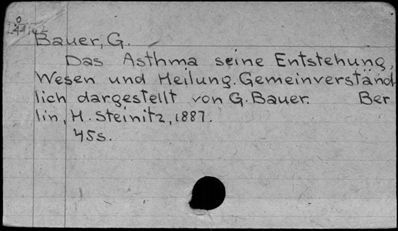 Bauer, G.
Das Asthma seine Entstehung,
Wesen und Heilung. Gemeinverständ
lich dargestellt von G. Bauer. Ber
lin, H. Steinitz, 1887.
45s.